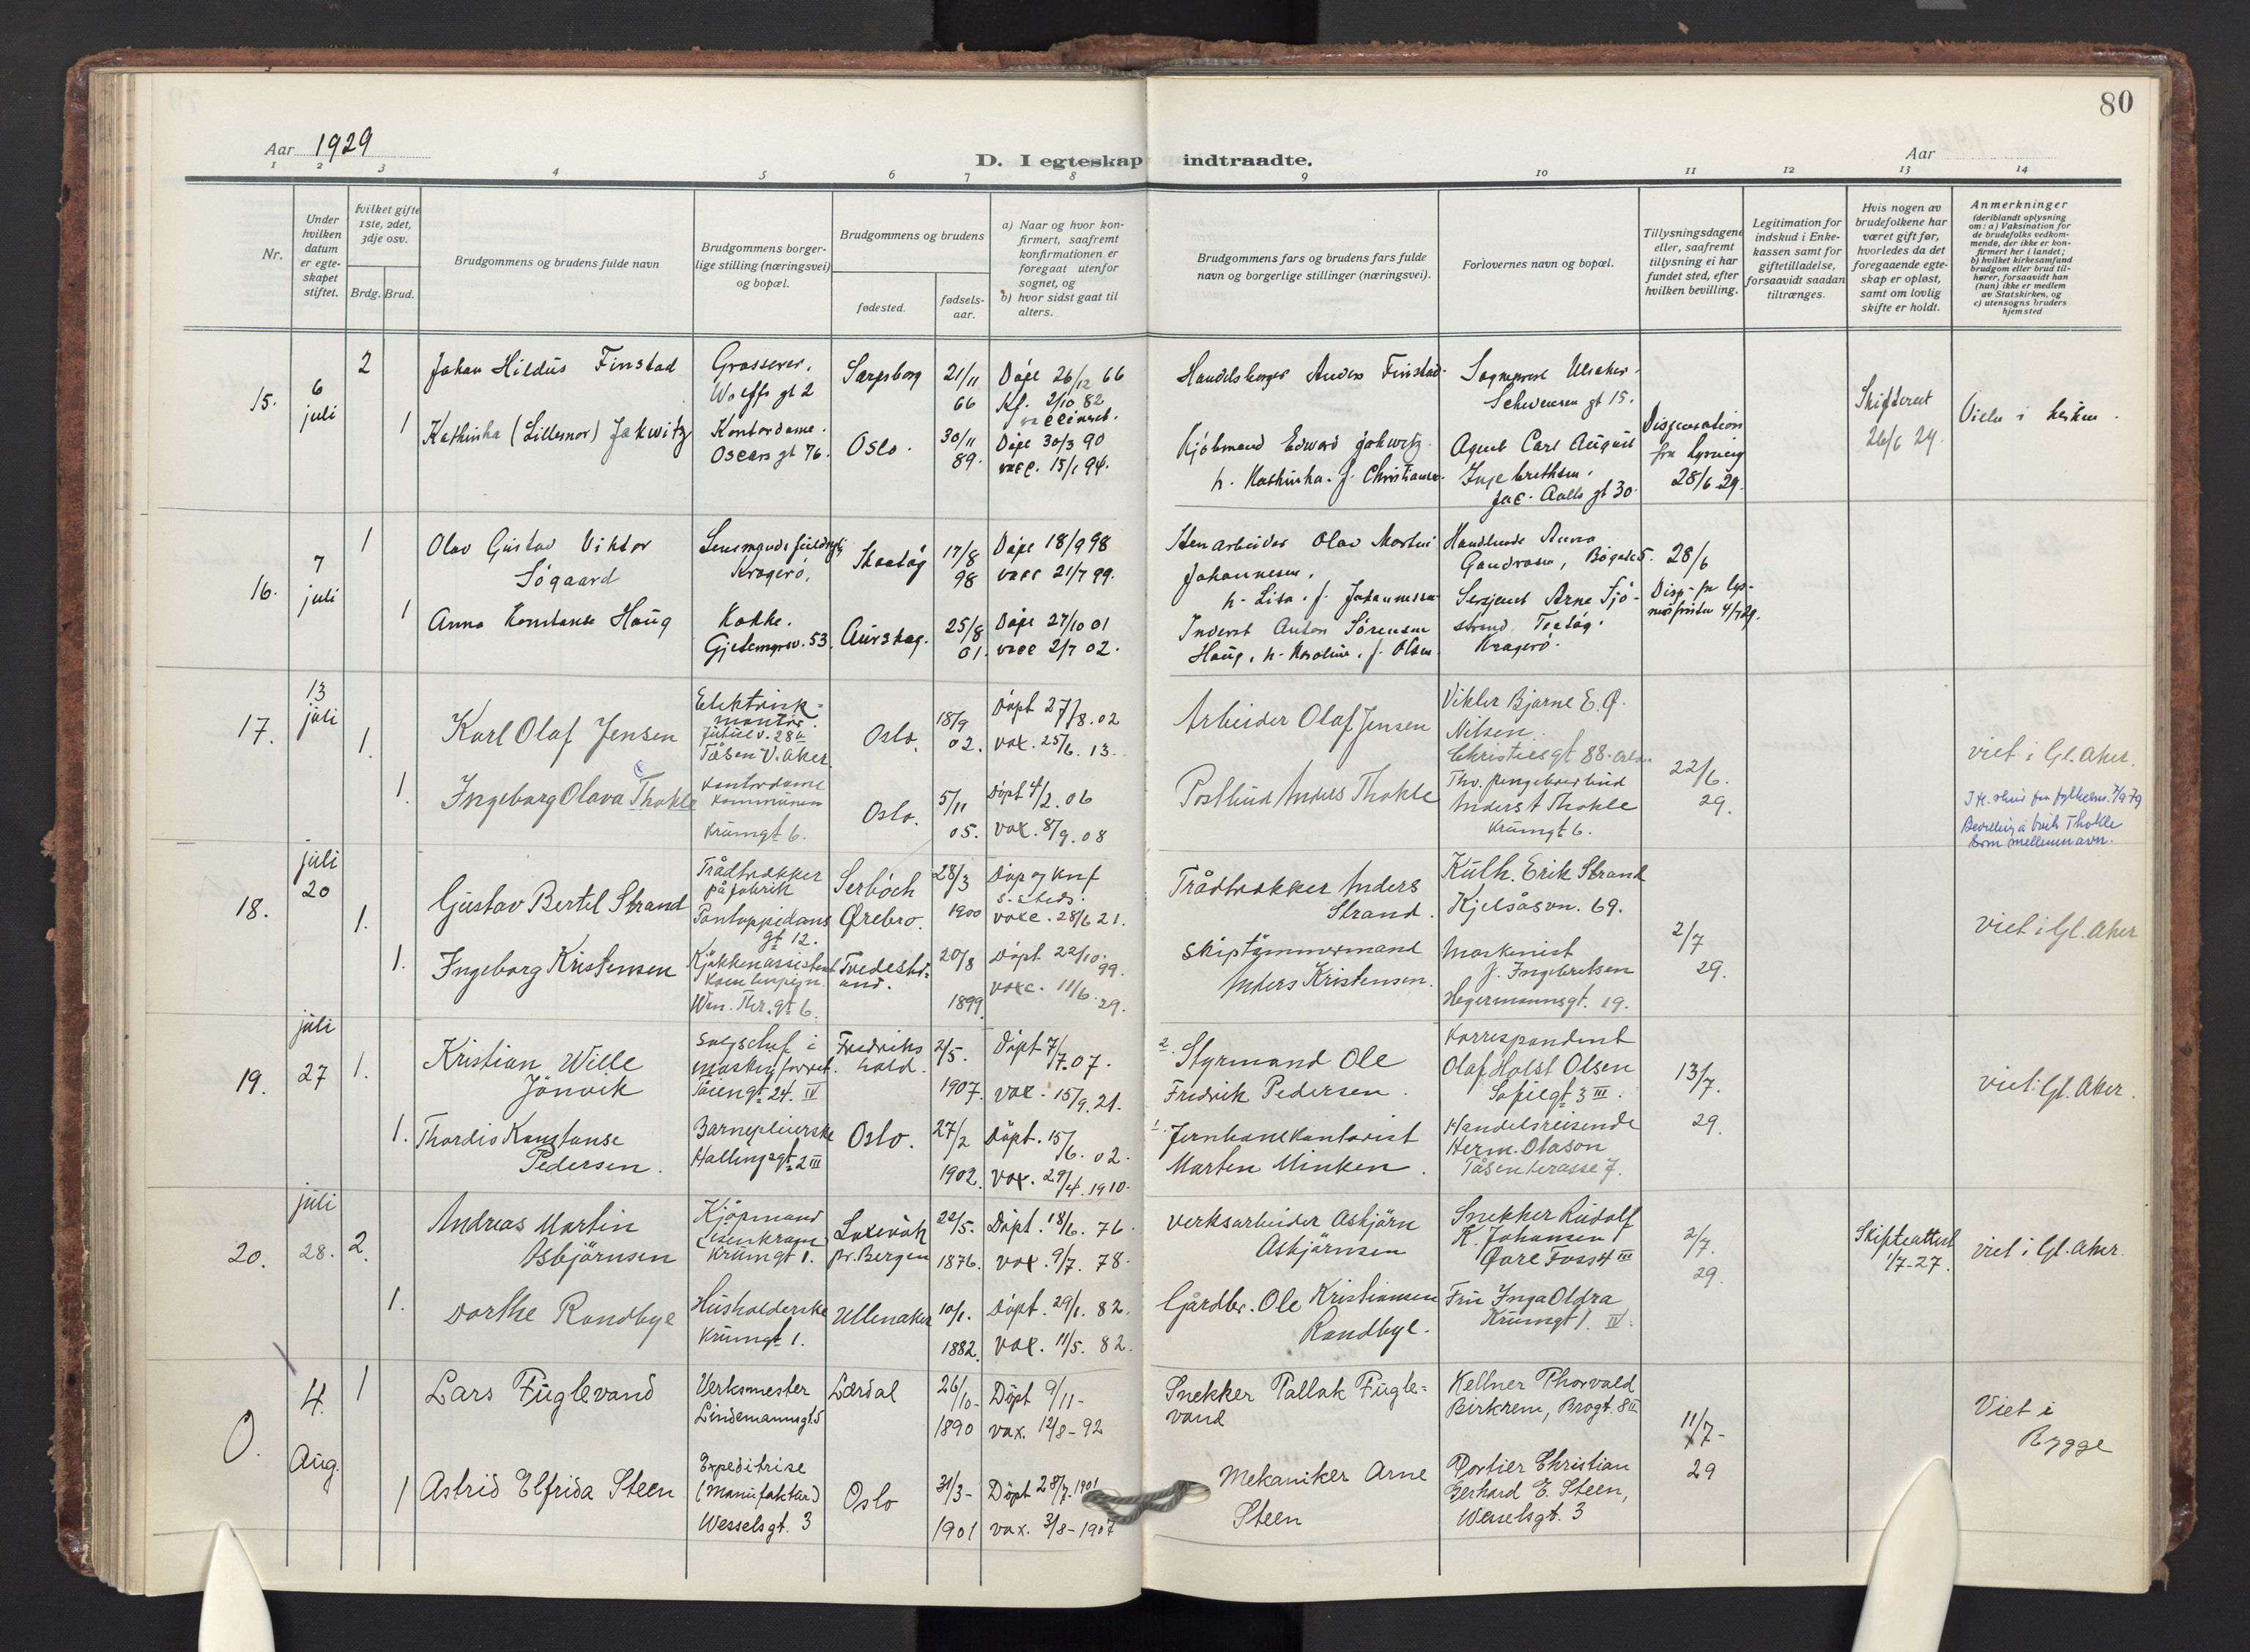 80
Aar 1929
D. I egteskap indtraadte.
Aar
1 2 3 4 5 6 7 8 9 10 11 12 13 14
Nr.
Under hvilken datum er egte-skapet stiftet.
hvilket gifte 1ste, 2det, 3dje osv.
Brdg. Brud.
Brudgommens og brudens fulde navn
Brudgommens borger-
lige stilling (næringsvei)
og bopæl.
Brudgommens og brudens
fødested.
fødsels-
aar.
a) Naar og hvor kon-
firmert, saafremt
konfirmationen er
foregaat utenfor
sognet, og
b) hvor sidst gaat til
alters.
Brudgommens fars og brudens fars fulde
navn og borgerlige stillinger (næringsvei).
Forlovernes navn og bopæl.
Tillysningsdagene
eller, saafremt
tillysning ei har
fundet sted, efter
hvilken bevilling.
Legitimation for
indskud i Enke-
kassen samt for
giftetilladelse,
forsaavidt saadan
tiltrænges.
Hvis nogen av
brudefolkene har
været gift før,
hvorledes da det
foregaaende egte-
skap er opløst,
samt om lovlig
skifte er holdt.
Anmerkninger
(deriblandt oplysning
om: a) Vaksination for
de brudefolks vedkom-
mende, der ikke er kon-
firmert her i landet;
b) hvilket kirkesamfund
brudgom eller brud til-
hører, forsaavidt han
(hun) ikke er medlem
av Statskirken, og
c) utensogns bruders
hjemsted
15.
6
juli
2
Johan Hildus Finstad
Grosserer.
Wolffs gt 2
Sarpsborg
21/11
66
Døpt 26/12 66
Kf. 2/10 82
Handelsborger Anders Finstad.
Schwensen gt 15.
1
Kathinka (Lillemor) Jakwitz
Kontordame.
Oscars gt 76.
Oslo.
30/11
89.
Døpt 30/3 90
vacc. 15/1 94.
Kjøbmand Edward Jakwitz.
h. Kathinka. f. Christiansen.
Agent Carl August
Ingebrethsen.
Jac. Aalls gt 30.
Dispensation
fra lysning
28/6 29.
26/6 29.
16.
7
juli
1
Olav Gustav Viktor
Søgaard
Kragerø,
Skaatøy
17/8
98
Døpt 18/9 98
vacc 21/7 99.
Stenarbeider Olav Martin
Johannesen,
h. Lisa. f. Johannessen
28/6
1
Anna Konstanse Haug
Kokke.
Gjetemyrsv. 53.
Aurskog.
25/8
01.
Døpt 27/10 01
vacc 2/7 02.
Anton Sørensen
Haug, h. Karoline, f. Olsen.
Sersjent Arne Fjø-
strand
Kragerø.
17.
13
juli
1.
Karl Olaf Jensen
Elektrisk=
montør.
Tåsen V. Aker.
Oslo.
18/9
02.
Døpt 27/8. 02
vax. 25/6. 13.
Arbeider Olaf Jensen
Vikler Bjarne E. Q.
Nilsen.
Christiesgt 88. Oslo
1.
Ingeborg Olava Thokle
kontordame
kommunen
Krumgt 6.
Oslo.
5/11
05.
Døpt 4/2. 06
vax. 8/9. 08
Postbud Anders Thokle
Anders A Thokle
Krumgt 6.
22/6.
29.
viet i Gl. Aker.
Bevilling å bruke Thokle
som mellemnavn.
18.
juli
20
1.
Gustav Bertil Strand
Trådtrekker
på fabrik
Pontoppidans
gt 12.
Ørebro.
28/3
1900
Døp og knf
s. steds.
vacc. 28/6 21.
Trådtrekker Anders
Strand.
Erik Strand
Kjelsåsvn. 69.
1.
Ingeborg Kristensen
Kjøkkenassistent
Wm. Thr. gt 6.
Tvedestr=
and.
20/8
1899.
Døpt 22/10. 99.
vacc. 11/6. 29.
Skiptømmermand
Anders Kristensen.
Maskinist
J. Ingebretsen
Hegermannsgt. 19.
2/7
29.
viet i Gl. Aker
19.
juli
27
1.
Kristian Wille
Jônvik
salgschef i
maskinforret.
Tøiengt 24. IV
Fredriks
hald.
2/5.
1907.
Døpt 7/7. 07.
vac. 15/9. 21.
2.
Styrmand Ole
Fredrik Pedersen.
Korrespondent
Olaf Holst Olsen
Sofiegt 3 III.
1.
Thordis Konstanse
Pedersen.
Barnepleierske
Hallingsgt. 2 III
Oslo.
27/2
1902.
Døpt. 15/6. 02.
vax. 29/4. 1910.
1.
Jernbanekontorist
Marten Minken.
Handelsreisende
Herm. Olason
Tåsen terasse 7.
13/7.
29.
viet i Gl. Aker.
20.
juli
28.
2.
Andreas Martin
Osbjørnsen
Kjøpmand
(isenkram)
Krumgt 1.
Laxevåk
pr. Bergen
22/5.
1876.
Døpt. 18/6. 76.
vax. 9/7. 78.
Verksarbeider Asbjørn
Asbjørnsen
Snekker Rudolf
K. Johansen
Øvre Foss 4 III
2/7.
29.
Skifteattest
1/7-27.
viet i Gl. Aker.
1.
Dorthe Randbye
Husholderske
Krumgt 1.
Ullensaker
10/1.
1882.
Døpt. 29/1. 82.
vax. 11/5. 82.
Gårdbr. Ole Kristiansen
Randbye.
Fru Inga Oldra
Krumgt 1. IV.
0.
4.
Aug.
1
Lars Fuglevand
Verksmester
Lindemannsgt. 5
Lærdal
26/10-
1890
Døpt 9/11-
vax. 12/8-92
Snekker Pallak Fugle=
vand
Kellner Thorvald
Birkrem, Brogt. 8 II
11/7-
29
Viet i
Rygge
1
Astrid Elfrida Steen
Expeditrise
(Manufaktur)
Wesselsgt. 3
Oslo
31/3-
1901
Døpt 28/7. 1901
vax. 3/8-1907
Mekaniker Arne
Steen
Portier Christian
Gerhard E. Steen,
Wesselsgt. 3